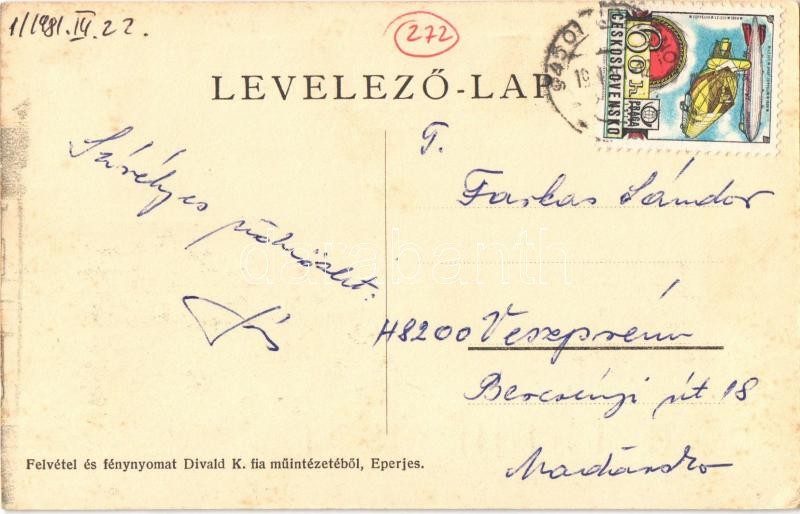 1/1981. IV. 22.
272
94501
60h
PRAGA
ČESKOSLOVENSKO
LEVELEZŐ-LAP
Szívélyes
üdvözlet:
T.
Farkas Sándor
H8200 Veszprém
Bercsényi út 18
darabanth
Felvétel és fénynyomat Divald K. fia műintézetéből, Eperjes.